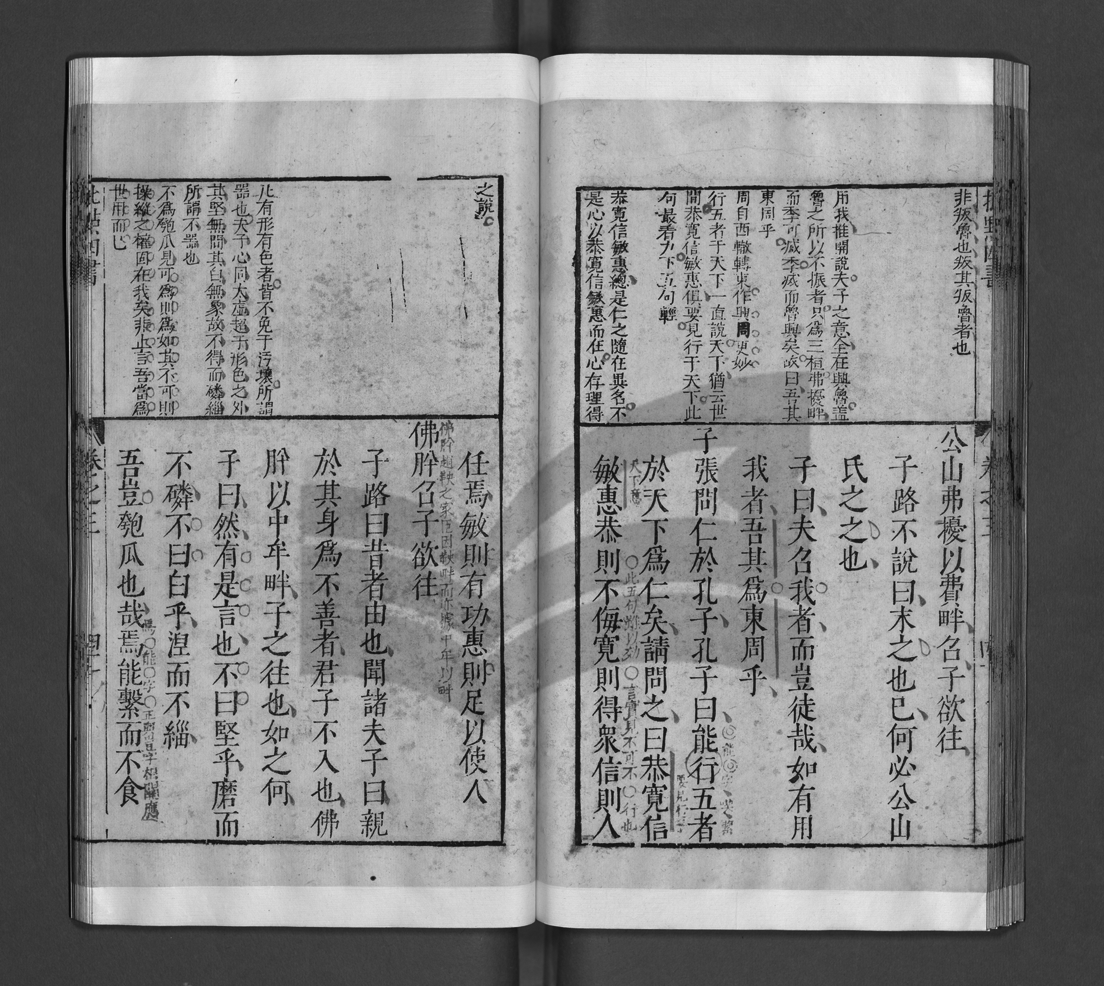 非叛魯也叛其叛魯者也
用我推開說夫子之意全在興魯蓋
魯之所以不振者只為三桓弗擾畔
而季可滅季滅而魯興矣故曰吾其
東周乎
周自西轍轉東作興周更妙
行五者于天下一直說天下猶云世
間恭寬信敏惠俱要見行于天下此
句最看力下五句輕
恭寬信敏惠總是仁之隨在異名不
是心以恭寬信敏惠而在心存理得
公山弗擾以費畔召子欲往
子路不說曰末之也已何必公山
氏之之也
子曰夫召我者而豈徒哉如有用
我者吾其為東周乎
子張問仁於孔子孔子曰能行五者
於天下為仁矣請問之曰恭寬信
敏惠恭則不侮寬則得衆信則人
之說
凡有形有色者皆不免于汚壞所謂
器也夫子心同太虛超于形色之外
其堅無間其白無象故不得而磷緇
所謂不器也
不為匏瓜見可為則為如其不可則
操縱之權固在我矣非止言吾當為
世用而已
任焉敏則有功惠則足以使人
佛肸召子欲往
子路曰昔者由也聞諸夫子曰親
於其身為不善者君子不入也佛
肸以中牟畔子之往也如之何
子曰然有是言也不曰堅乎磨而
不磷不曰白乎涅而不緇
吾豈匏瓜也哉焉能繫而不食